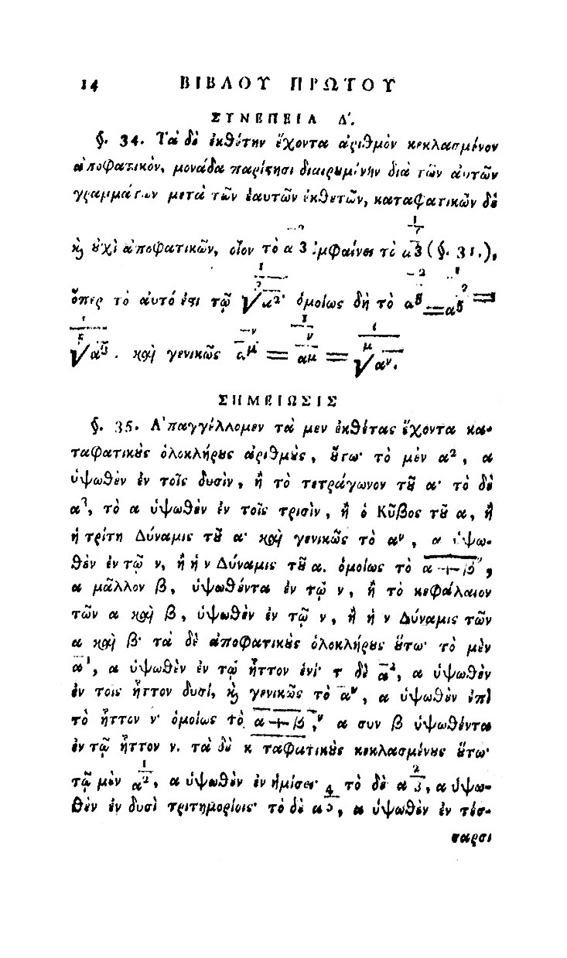 14 ΒΙΒΛΟΥ ΠΡΩΤΟΥ
ΣΥΝΕΠΕΙΑ Δ'.
§. 34. Τὰ δὲ ἐκθέτην ἔχοντα ἀριθμὸν κεκλασμένον
ἀποφατικὸν, μονάδα παρίϛησι διαιρεμένην διὰ τῶν αὐτῶν
γραμμάτων μετὰ τῶν ἑαυτῶν ἐκθετῶν, καταφατικῶν δὲ
ϗ ȣ̓χὶ ἀποφατικῶν, οἷον τὸ α 3 ἐμφαίνει τὸ α3 (§. 31.),
ὅπερ τὸ αὐτό ἐϛι τῷ √α². ὁμοίως δὴ τὸ α5 = α5 =
√α3. καὶ γενικῶς αμ = αμ = √αν.
ΣΗΜΕΙΩΣΙΣ
§. 35. Ἀπαγγέλλομεν τὰ μεν ἐκθέτας ἔχοντα κα-
ταφατικȣς ὁλοκλήρȣς ἀριθμȣς, ȣ̔́τω· τὸ μὲν α², α
ὑψωθὲν ἐν τοῖς δυσὶν, ἢ τὸ τετράγωνον τȣ͂ α· τὸ δὲ
α³, τὸ α ὑψωθὲν ἐν τοῖς τρισὶν, ἢ ὁ Κῦβος τȣ͂ α, ἢ
ἡ τρίτη Δύναμις τȣ͂ α· καὶ γενικῶς τὸ αν, α ὑψω-
θὲν ἐν τῷ ν, ἢ ἡ ν Δύναμις τȣ͂ α. ὁμοίως τὸ α + βν,
α μᾶλλον β, ὑψωθέντα ἐν τῷ ν, ἢ τὸ κεφάλαιον
τῶν α καὶ β, ὑψωθὲν ἐν τῷ ν, ἢ ἡ ν Δύναμις τῶν
α καὶ β· τὰ δὲ ἀποφατικȣς ὁλοκλήρȣς ȣ̔́τω· τὸ μὲν
α¹, α ὑψωθὲν ἐν τῷ ἧττον ἑνί· τ δὲ α², α ὑψωθὲν
ἐν τοῖς ἧττον δυσί, ϗ γενικῶς τὸ αν, α ὑψωθὲν ἐπὶ
τὸ ἧττον ν· ὁμοίως τὸ α + β,ν α συν β ὑψωθέντα
ἐν τῷ ἧττον ν. τὰ δὲ κ ταφατικȣς κεκλασμένȣς ȣ̔́τω·
τῷ μὲν α½, α ὑψωθὲν ἐν ἡμίσει· τὸ δὲ α⅔, α ὑψω-
θὲν ἐν δυσὶ τριτημορίοις· τὸ δὲ α⅘, α ὑψωθὲν ἐν τέσ-
σαρσι